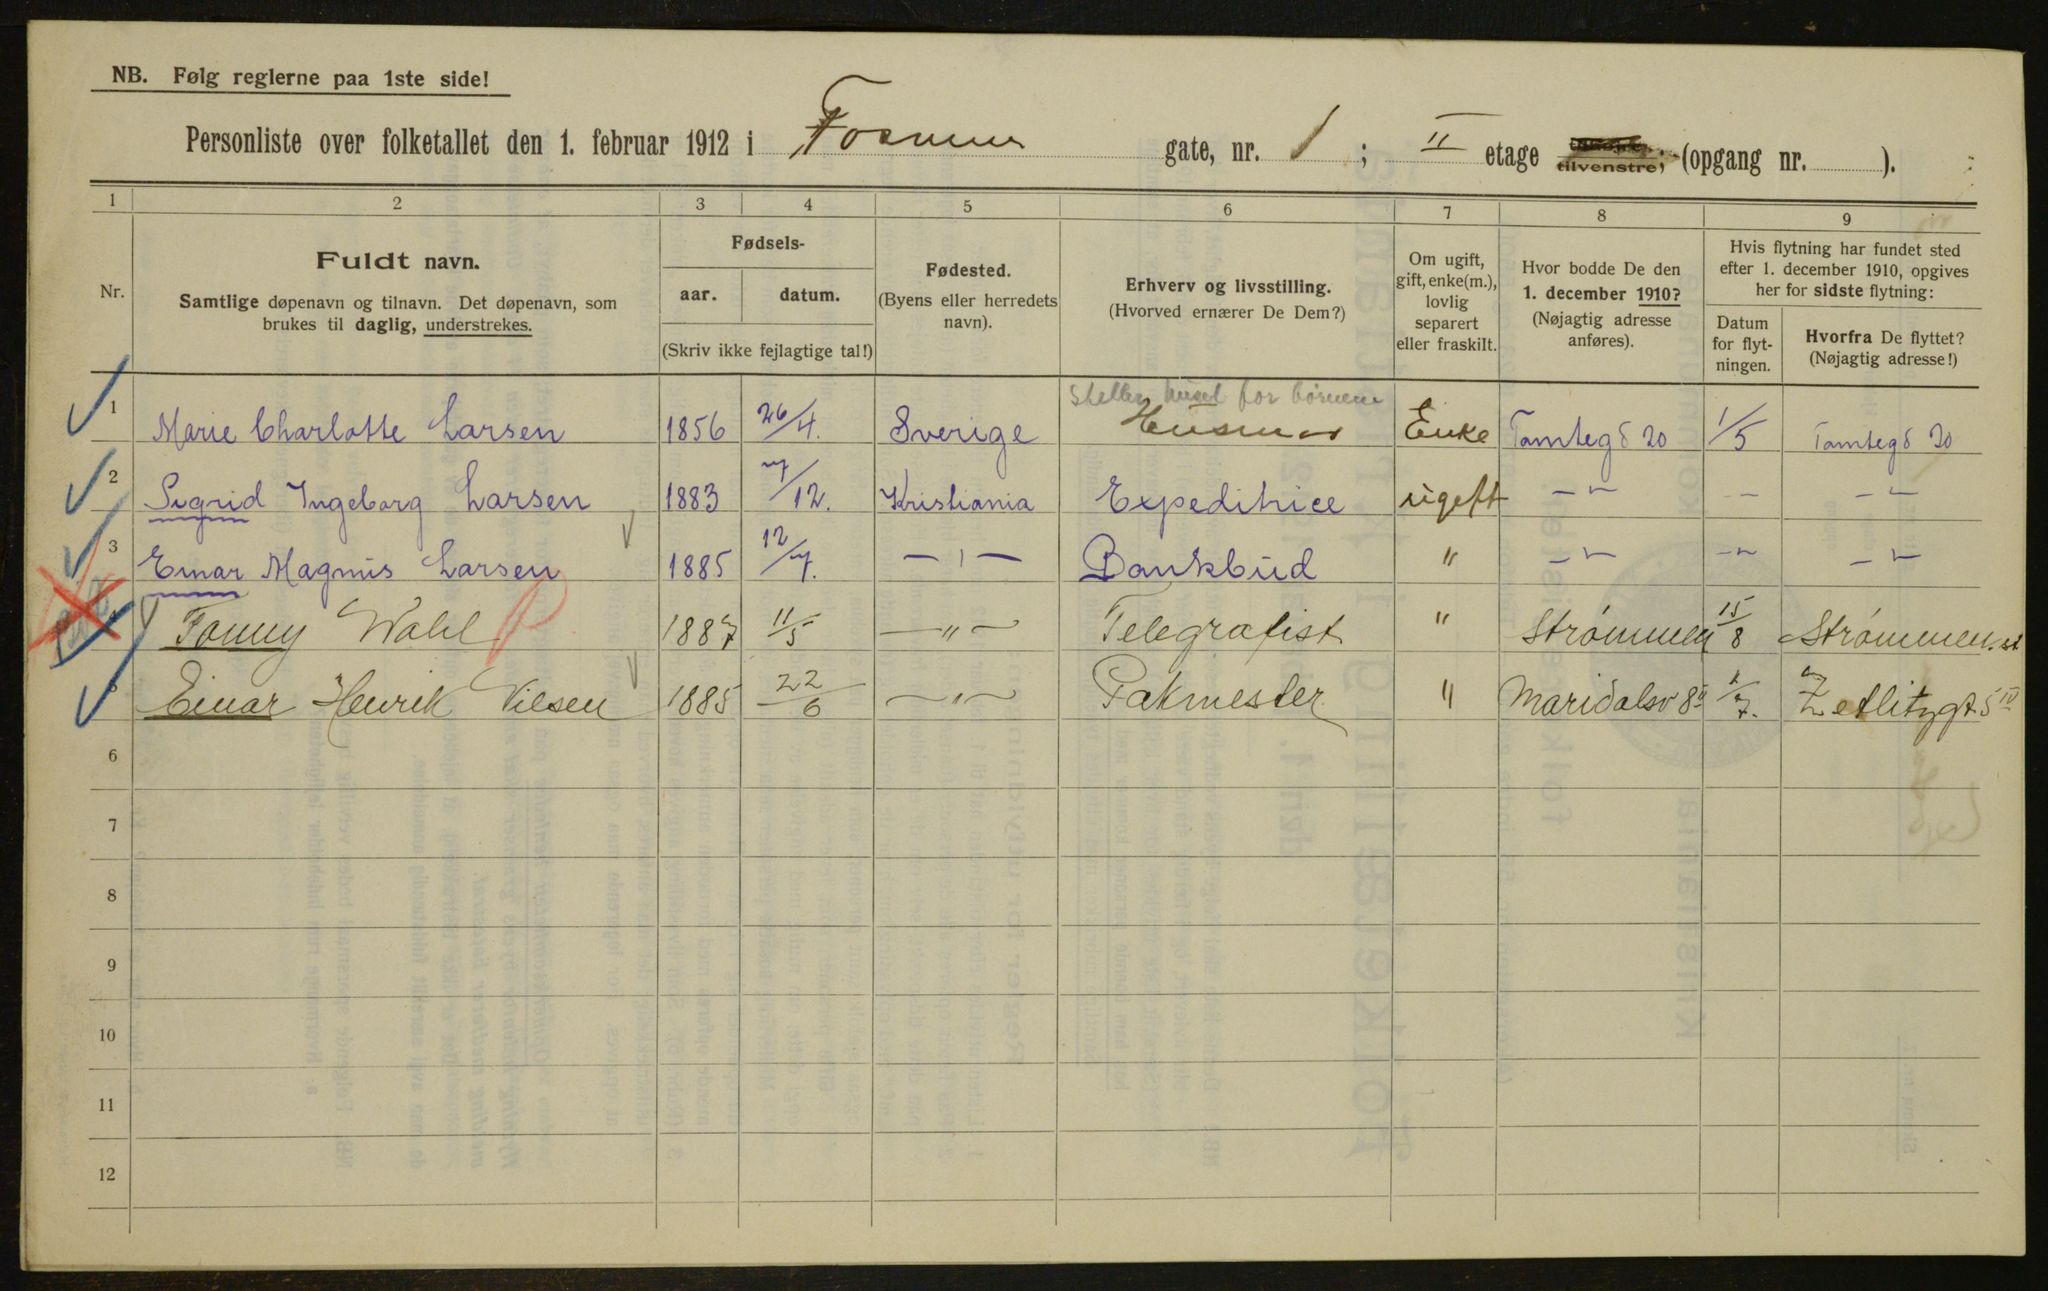 NB. Følg reglerne paa 1ste side!
Personliste over folketallet den 1. februar 1912 i Fosnes gate, nr. 1 ; II etage tilvenstre; (opgang nr. ).
1 2 3 4 5 6 7 8 9
Nr.
Fuldt navn.
Samtlige døpenavn og tilnavn. Det døpenavn, som
brukes til daglig, understrekes.
Fødsels-
aar. datum.
(Skriv ikke fejlagtige tal!)
Fødested.
(Byens eller herredets
navn).
Erhverv og livsstilling.
(Hvorved ernærer De Dem?)
Om ugift,
gift, enke(m.),
lovlig
separert
eller fraskilt.
Hvor bodde De den
1. december 1910?
(Nøjagtig adresse
anføres).
Hvis flytning har fundet sted
efter 1. december 1910, opgives
her for sidste flytning:
Datum
for flyt-
ningen.
Hvorfra De flyttet?
(Nøjagtig adresse!)
steller huset for børnene
1 Marie Charlotte Larsen 1856 26/4. Sverige Husmor Enke Tomtegd 20 1/5 Tomtegd 20
2 Sigrid Ingeborg Larsen 1883 7/12. Kristiania Expeditrice ugift — " — " — "
3 Einar Magnus Larsen 1885 12/7. — " — Bankbud " — " — " — "
4 Fanny Wahl 1887 11/5 — " — Telegrafist " Strømmen 15/8 Strømmen st
5 Einar Henrik Nilsen 1885 22/6 — " — Pakmester " Maridalsv 8 II 1/7. Zetlitzgt 5 IV
6
7
8
9
10
11
12